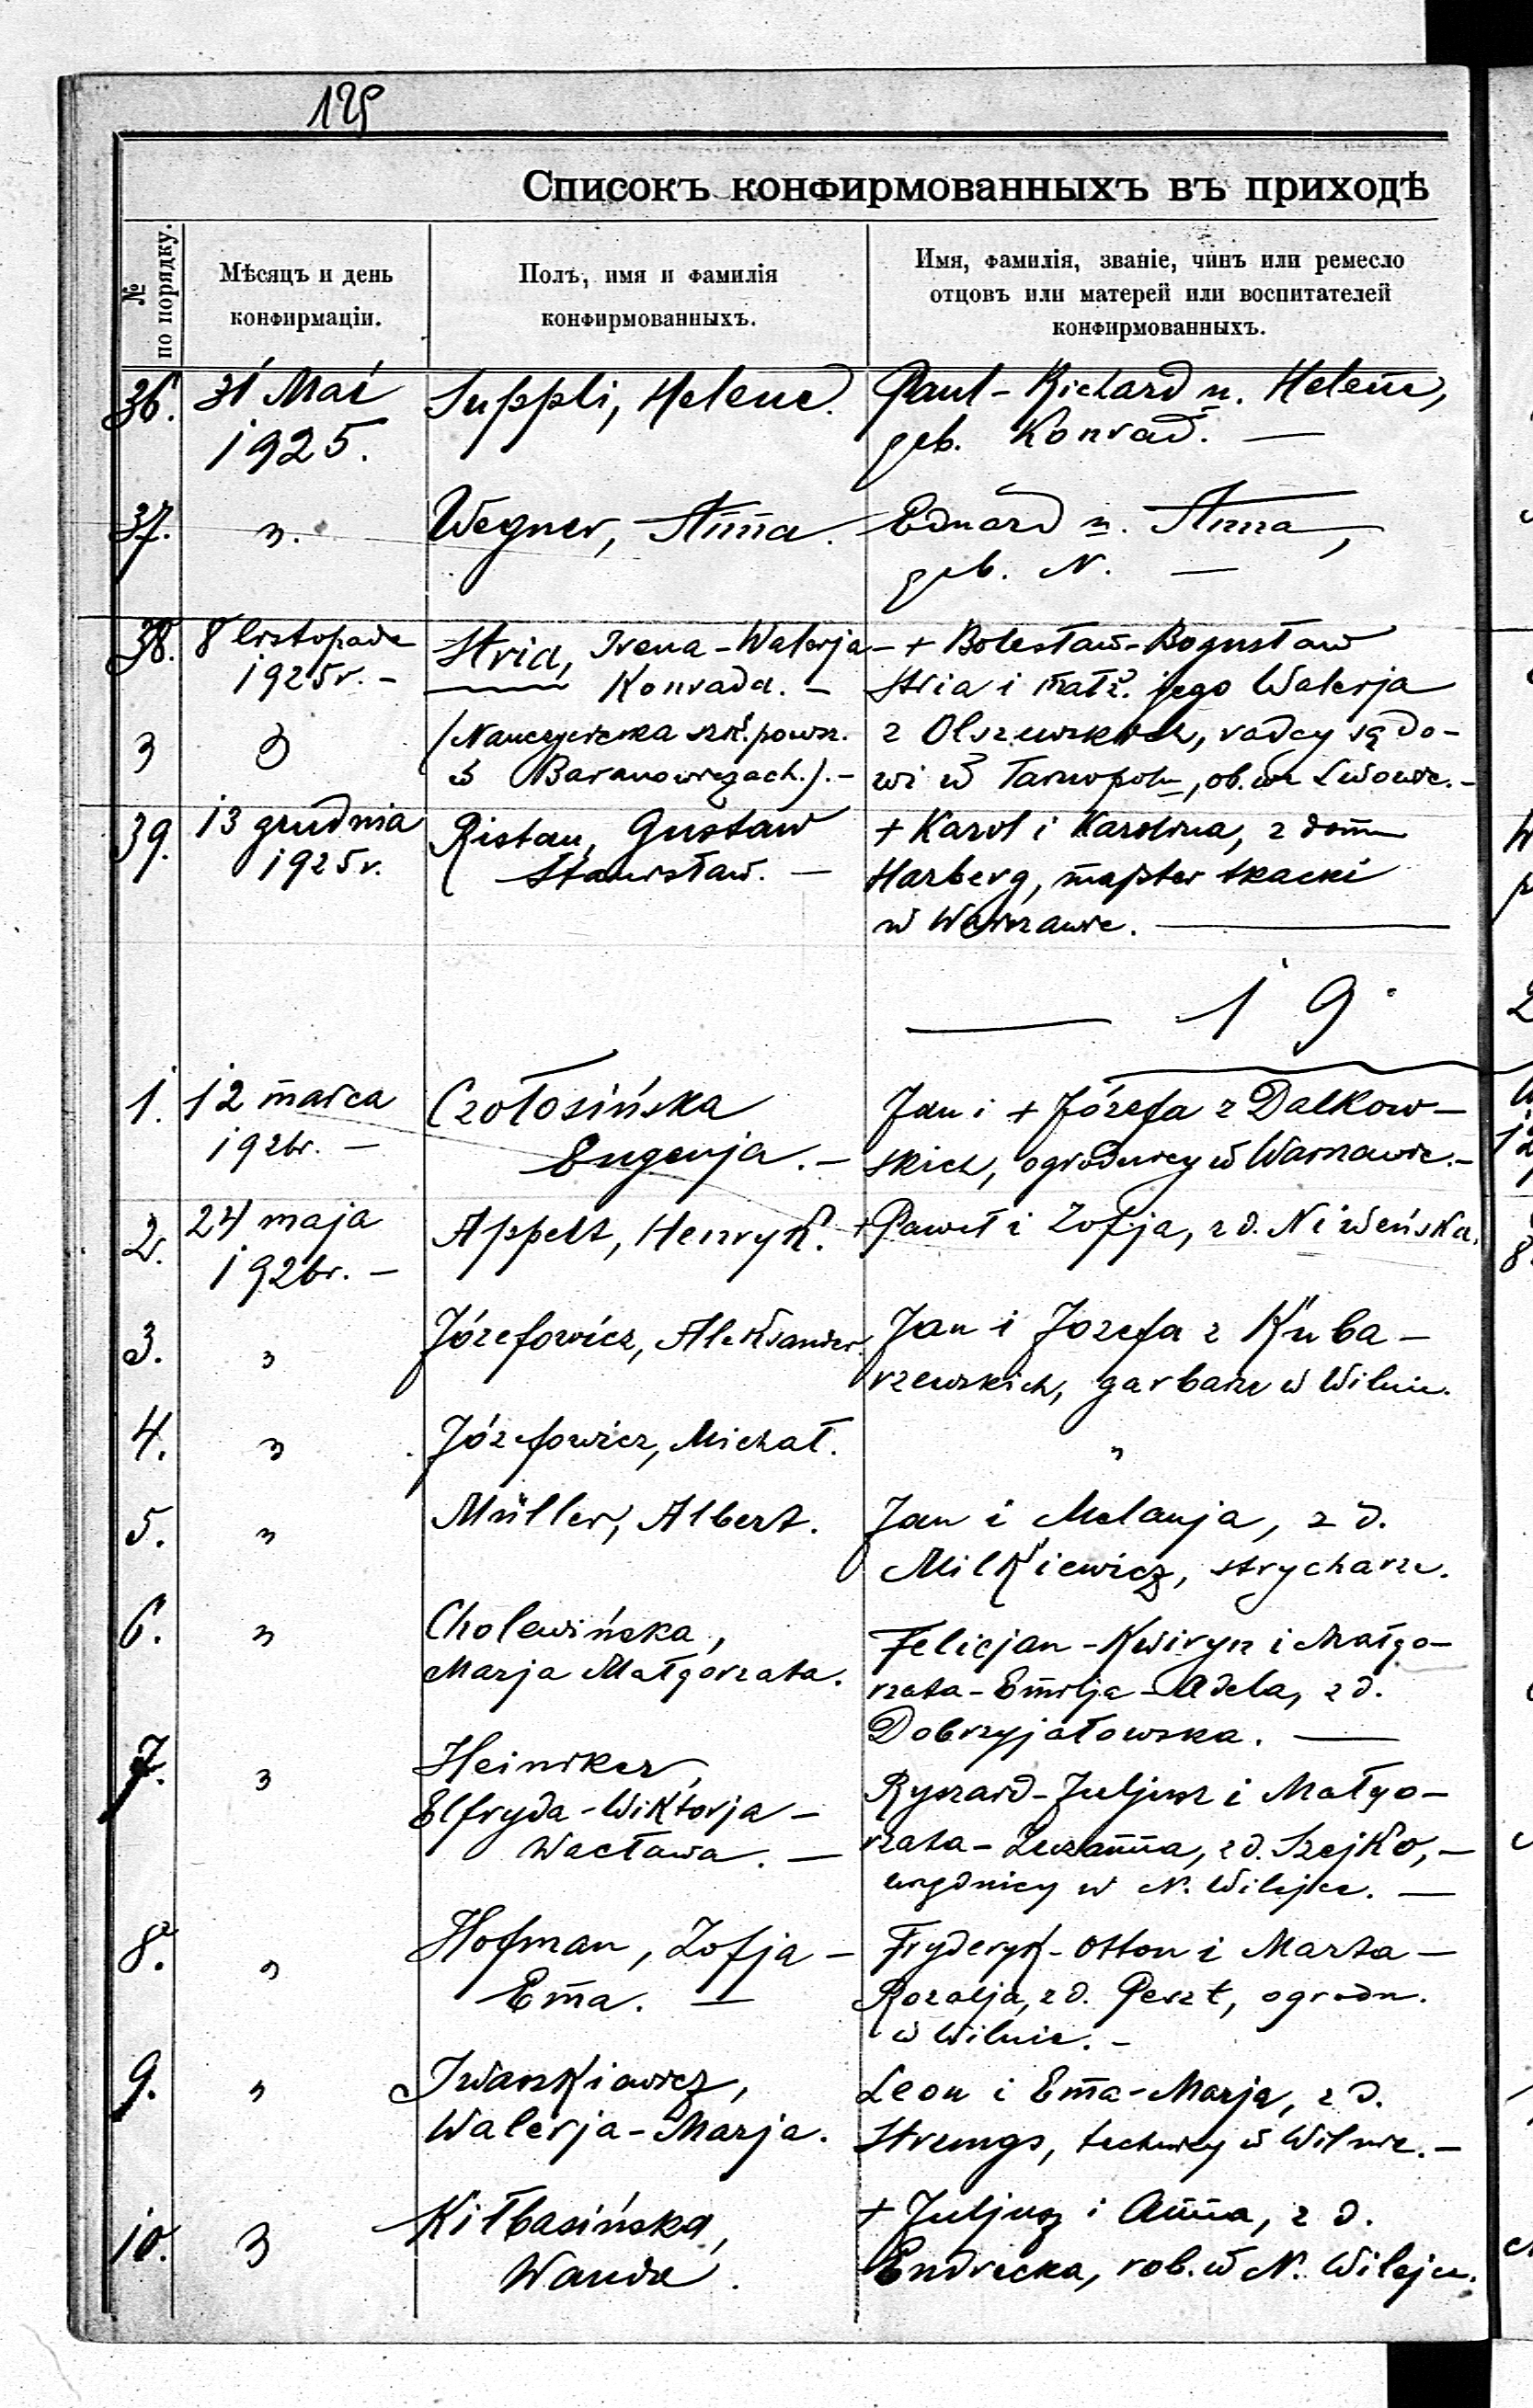 125
Списокъ конфирмованныхъ въ приходѣ
№ по порядку.
Мѣсяцъ и день
конфирмаціи.
Полъ, имя и фамилія
конфирмованныхъ.
Имя, фамилія, званіе, чинъ или ремесло
отцовъ или матерей или воспитателей
конфирмованныхъ.
36. 31 Mai Suppli, Helene. Paul-Richard u. Helene,
1925. geb. Konrad. —
37. " Wegner, Anna. Eduard u. Anna,
geb. N. —
38. 8 listopada Stria, Irena-Walerja- + Bolesław-Bogusław
1925r. – Konrada. – Stria i małż. jego Walerja
" " (Nauczycielka szk. powsz. z Olszewskich, radcy sądo-
w Baranowiczach.). – wi w Tarnopolu, ob. we Lwowie. –
39. 13 grudnia Ristau, Gustaw + Karol i Karolina, z domu
1925r. Stanisław. — Harberg, majster tkacki
w Warszawie. —
— 19
1. 12 marca Czołosińska Jan i + Józefa z Dalkow-
1926r. — Eugenja. – skich, ogrodnicy w Warszawie. –
2. 24 maja Appelt, Henryk. + Paweł i Zofja, z d. Niweńska.
1926r. –
3. " Józefowicz, Aleksander. Jan i Jozefa z Kuba-
rzewskich, garbarze w Wilnie.
4. " Józefowicz, Michał. "
5. " Müller, Albert. Jan i Melanja, z d.
Milkiewicz, strycharze.
6. " Cholewińska, Felicjan-Kwiryn i Małgo-
Marja Małgorzata. rzata-Emilja-Adela, z d.
Dobrzyjałowska. —
7. " Heinrker, Ryszard-Juljusz i Małgo-
Elfryda-Wiktorja- rzata-Zuzanna, z d. Szejko, –
Wacława. — urzędnicy w N. Wilejce. —
8. " Hofman, Zofja- Fryderyk-Otton i Marta-
Ema. — Rozalja, z d. Peszt, ogrodn.
w Wilnie. –
9. " Iwaszkiewicz, Leon i Ema-Marja, z d.
Walerja-Marja. Strumgs, technicy w Wilnie. –
10. " Kiłbasińska, + Juljusz i Anna, z d.
Wanda. Endrecka, rob. w N. Wilejce.